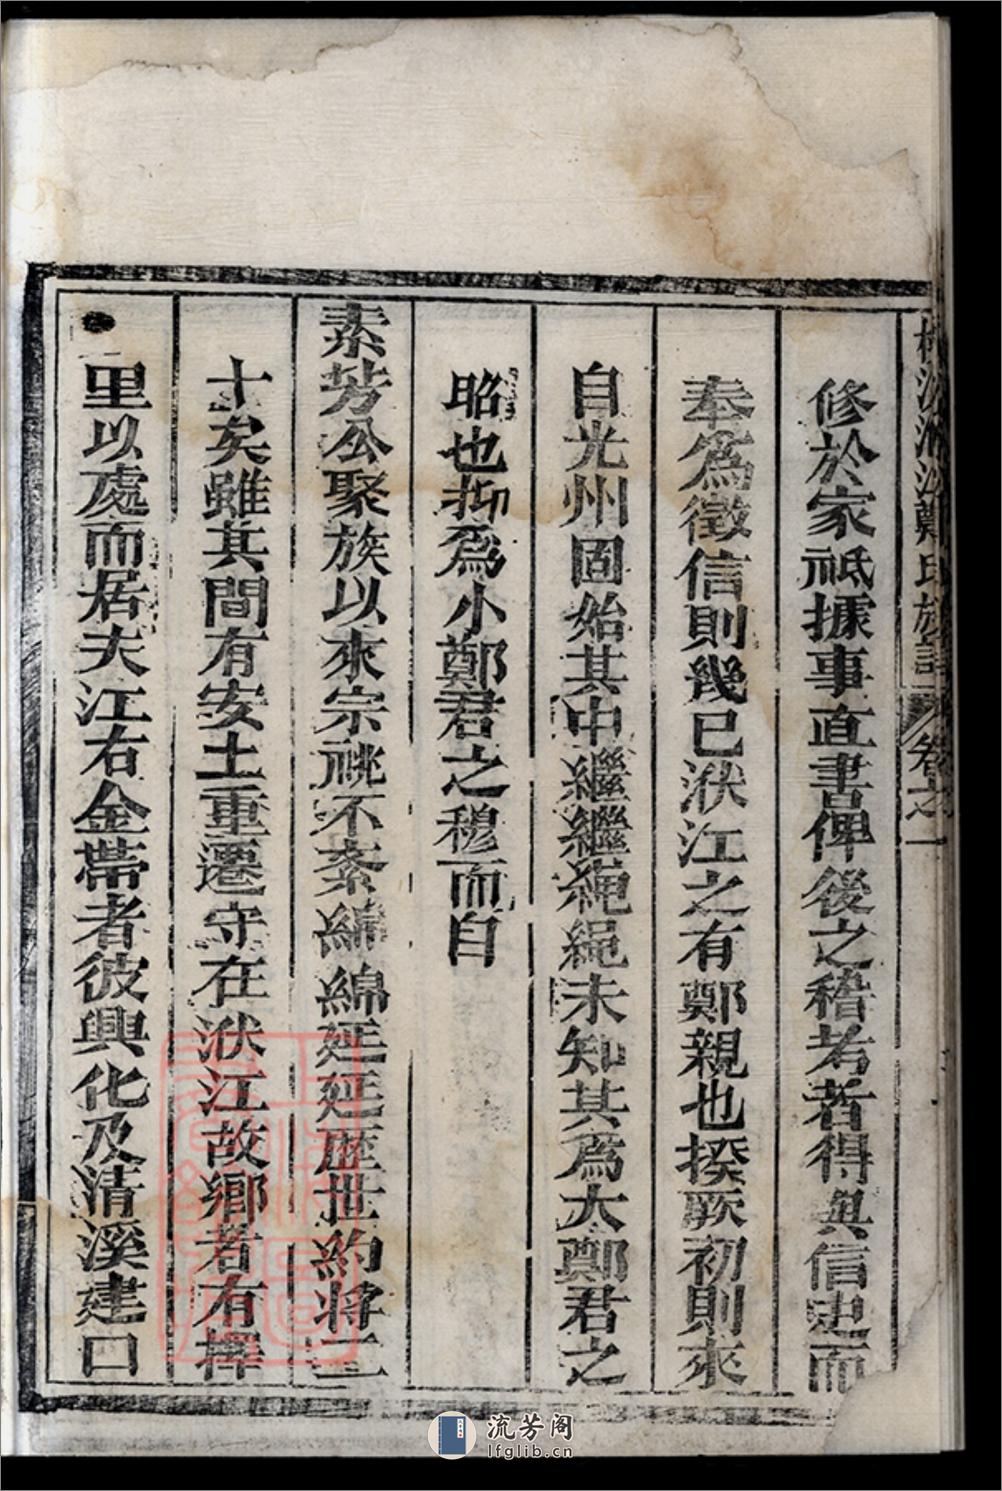 鄭氏族譜 卷之一
修於家祗據事直書俾後之稽考者得與信史而
奉爲徵信則幾已洑江之有鄭親也揆厥初則來
自光州固始其中繼繼繩繩未知其爲大鄭君之
昭也抑爲小鄭君之穆而自
素芳公聚族以來宗祧不紊綿綿延延歷世約將二
十矣雖其間有安土重遷守在洑江故鄉者有擇
里以處而居夫江右金帶者彼興化及清溪建口
流芳阁
lfglib.cn